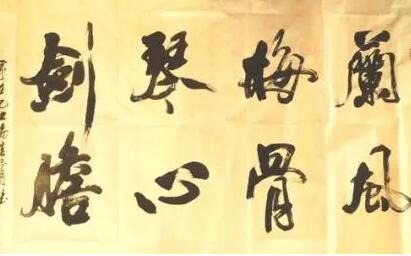 蘭風
梅骨
琴心
劍膽